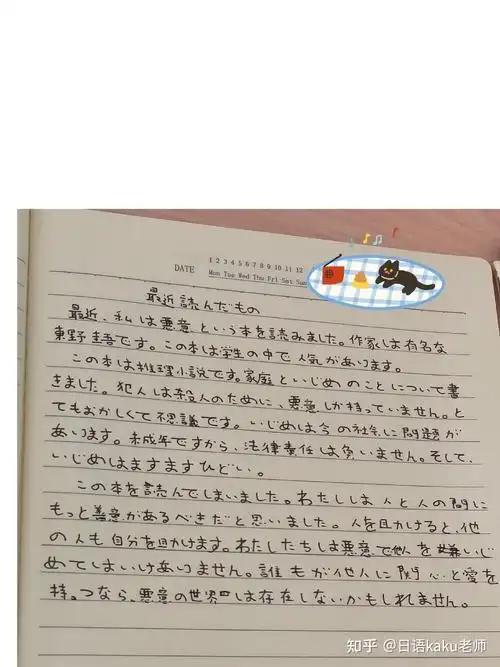 DATE
1 2 3 4 5 6 7 8 9 10 11 12
Mon Tue Wed Thu Fri Sat Sun
最近読んだもの
最近、私は悪意という本を読みました。作家は有名な
東野圭吾です。この本は学生の中で人気があります。
この本は推理小説です。家庭といじめのことについて書
きました。犯人は殺人のために、悪意しか持っていません。と
てもおかしくて不思議です。いじめは今の社会に問題が
あります。未成年ですから、法律責任は負いません。そして、
いじめはますますひどい。
この本を読んでしまいました。わたしは人と人の間に
もっと善意があるべきだと思いました。人を助けると、他
の人も自分を助けます。わたしたちは悪意で他人を嫌いじ
めてしまいけありません。誰もが他人に関心と愛を
持つなら、悪意の世界は存在しないかもしれません。
知乎 @日语kaku老师